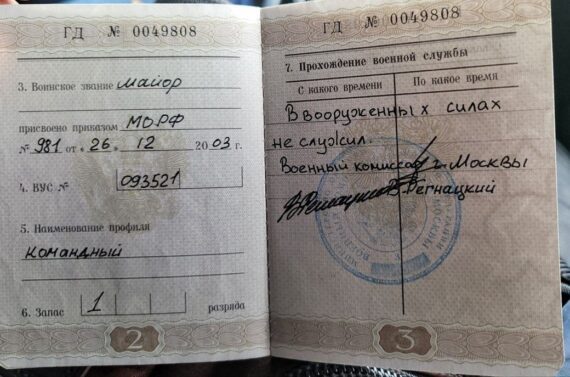 ГД № 0049808
3. Воинское звание майор
присвоено приказом МО РФ
№ 981 от «26» 12 2003 г.
4. ВУС № 093521
5. Наименование профиля
командный
6. Запас 1 разряда
2
ГД № 0049808
7. Прохождение военной службы
С какого времени По какое время
В вооруженных силах
не служил.
Военный комиссар г. Москвы
В. Регнацкий
3